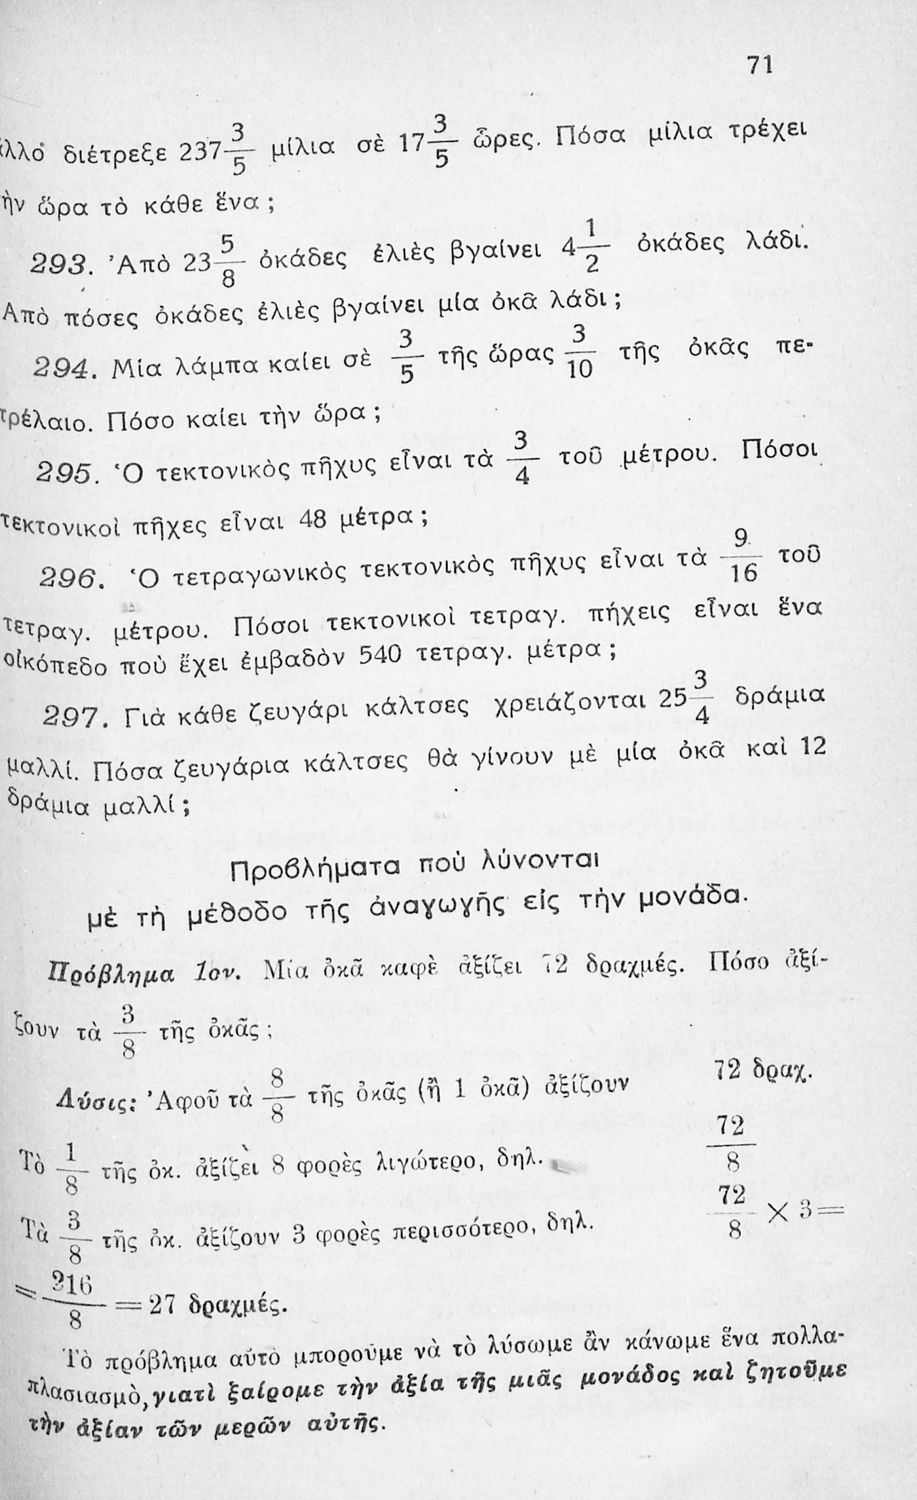 71
λλο διέτρεξε 237 3/5 μίλια σὲ 17 3/5 ὧρες. Πόσα μίλια τρέχει
ὴν ὥρα τὸ κάθε ἕνα;
293. Ἀπὸ 23 5/8 ὀκάδες ἐλιὲς βγαίνει 4 1/2 ὀκάδες λάδι.
Ἀπὸ πόσες ὀκάδες ἐλιὲς βγαίνει μία ὀκᾶ λάδι;
294. Μία λάμπα καίει σὲ 3/5 τῆς ὥρας 3/10 τῆς ὀκᾶς πε-
τρέλαιο. Πόσο καίει τὴν ὥρα;
295. Ὁ τεκτονικὸς πῆχυς εἶναι τὰ 3/4 τοῦ μέτρου. Πόσοι
τεκτονικοὶ πῆχες εἶναι 48 μέτρα;
296. Ὁ τετραγωνικὸς τεκτονικὸς πῆχυς εἶναι τὰ 9/16 τοῦ
τετραγ. μέτρου. Πόσοι τεκτονικοὶ τετραγ. πήχεις εἶναι ἕνα
οἰκόπεδο ποὺ ἔχει ἐμβαδὸν 540 τετραγ. μέτρα;
297. Γιὰ κάθε ζευγάρι κάλτσες χρειάζονται 25 3/4 δράμια
μαλλί. Πόσα ζευγάρια κάλτσες θὰ γίνουν μὲ μία ὀκᾶ καὶ 12
δράμια μαλλί;
Προβλήματα ποὺ λύνονται
μὲ τὴ μέθοδο τῆς ἀναγωγῆς εἰς τὴν μονάδα.
Πρόβλημα 1ον. Μία ὀκᾶ καφὲ ἀξίζει 72 δραχμές. Πόσο ἀξί-
ζουν τὰ 3/8 τῆς ὀκᾶς;
Λύσις: Ἀφοῦ τὰ 8/8 τῆς ὀκᾶς (ἢ 1 ὀκᾶ) ἀξίζουν 72 δραχ.
Τὸ 1/8 τῆς ὀκ. ἀξίζει 8 φορὲς λιγώτερο, δηλ. 72/8
Τὰ 3/8 τῆς ὀκ. ἀξίζουν 3 φορὲς περισσότερο, δηλ. 72/8 × 3 =
= 216/8 = 27 δραχμές.
Τὸ πρόβλημα αὐτὸ μποροῦμε νὰ τὸ λύσωμε ἂν κάνωμε ἕνα πολλα-
πλασιασμὸ, γιατὶ ξαίρομε τὴν ἀξία τῆς μιᾶς μονάδος καὶ ζητοῦμε
τὴν ἀξίαν τῶν μερῶν αὐτῆς.